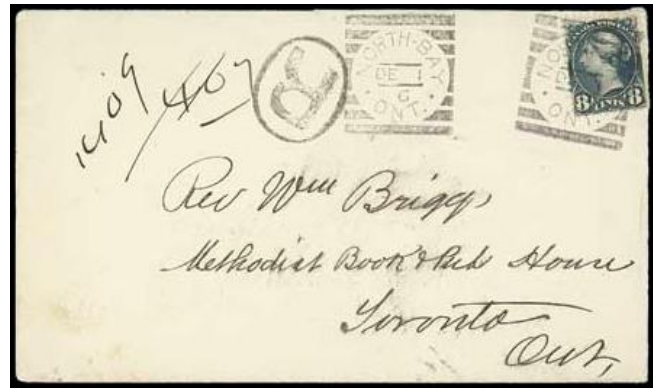 1409
467
R
NORTH-BAY
DE 1
6
ONT.
NO
ONT.
8 CENTS 8
Rev Wm Briggs
Methodist Book & Pub House
Toronto
Ont,